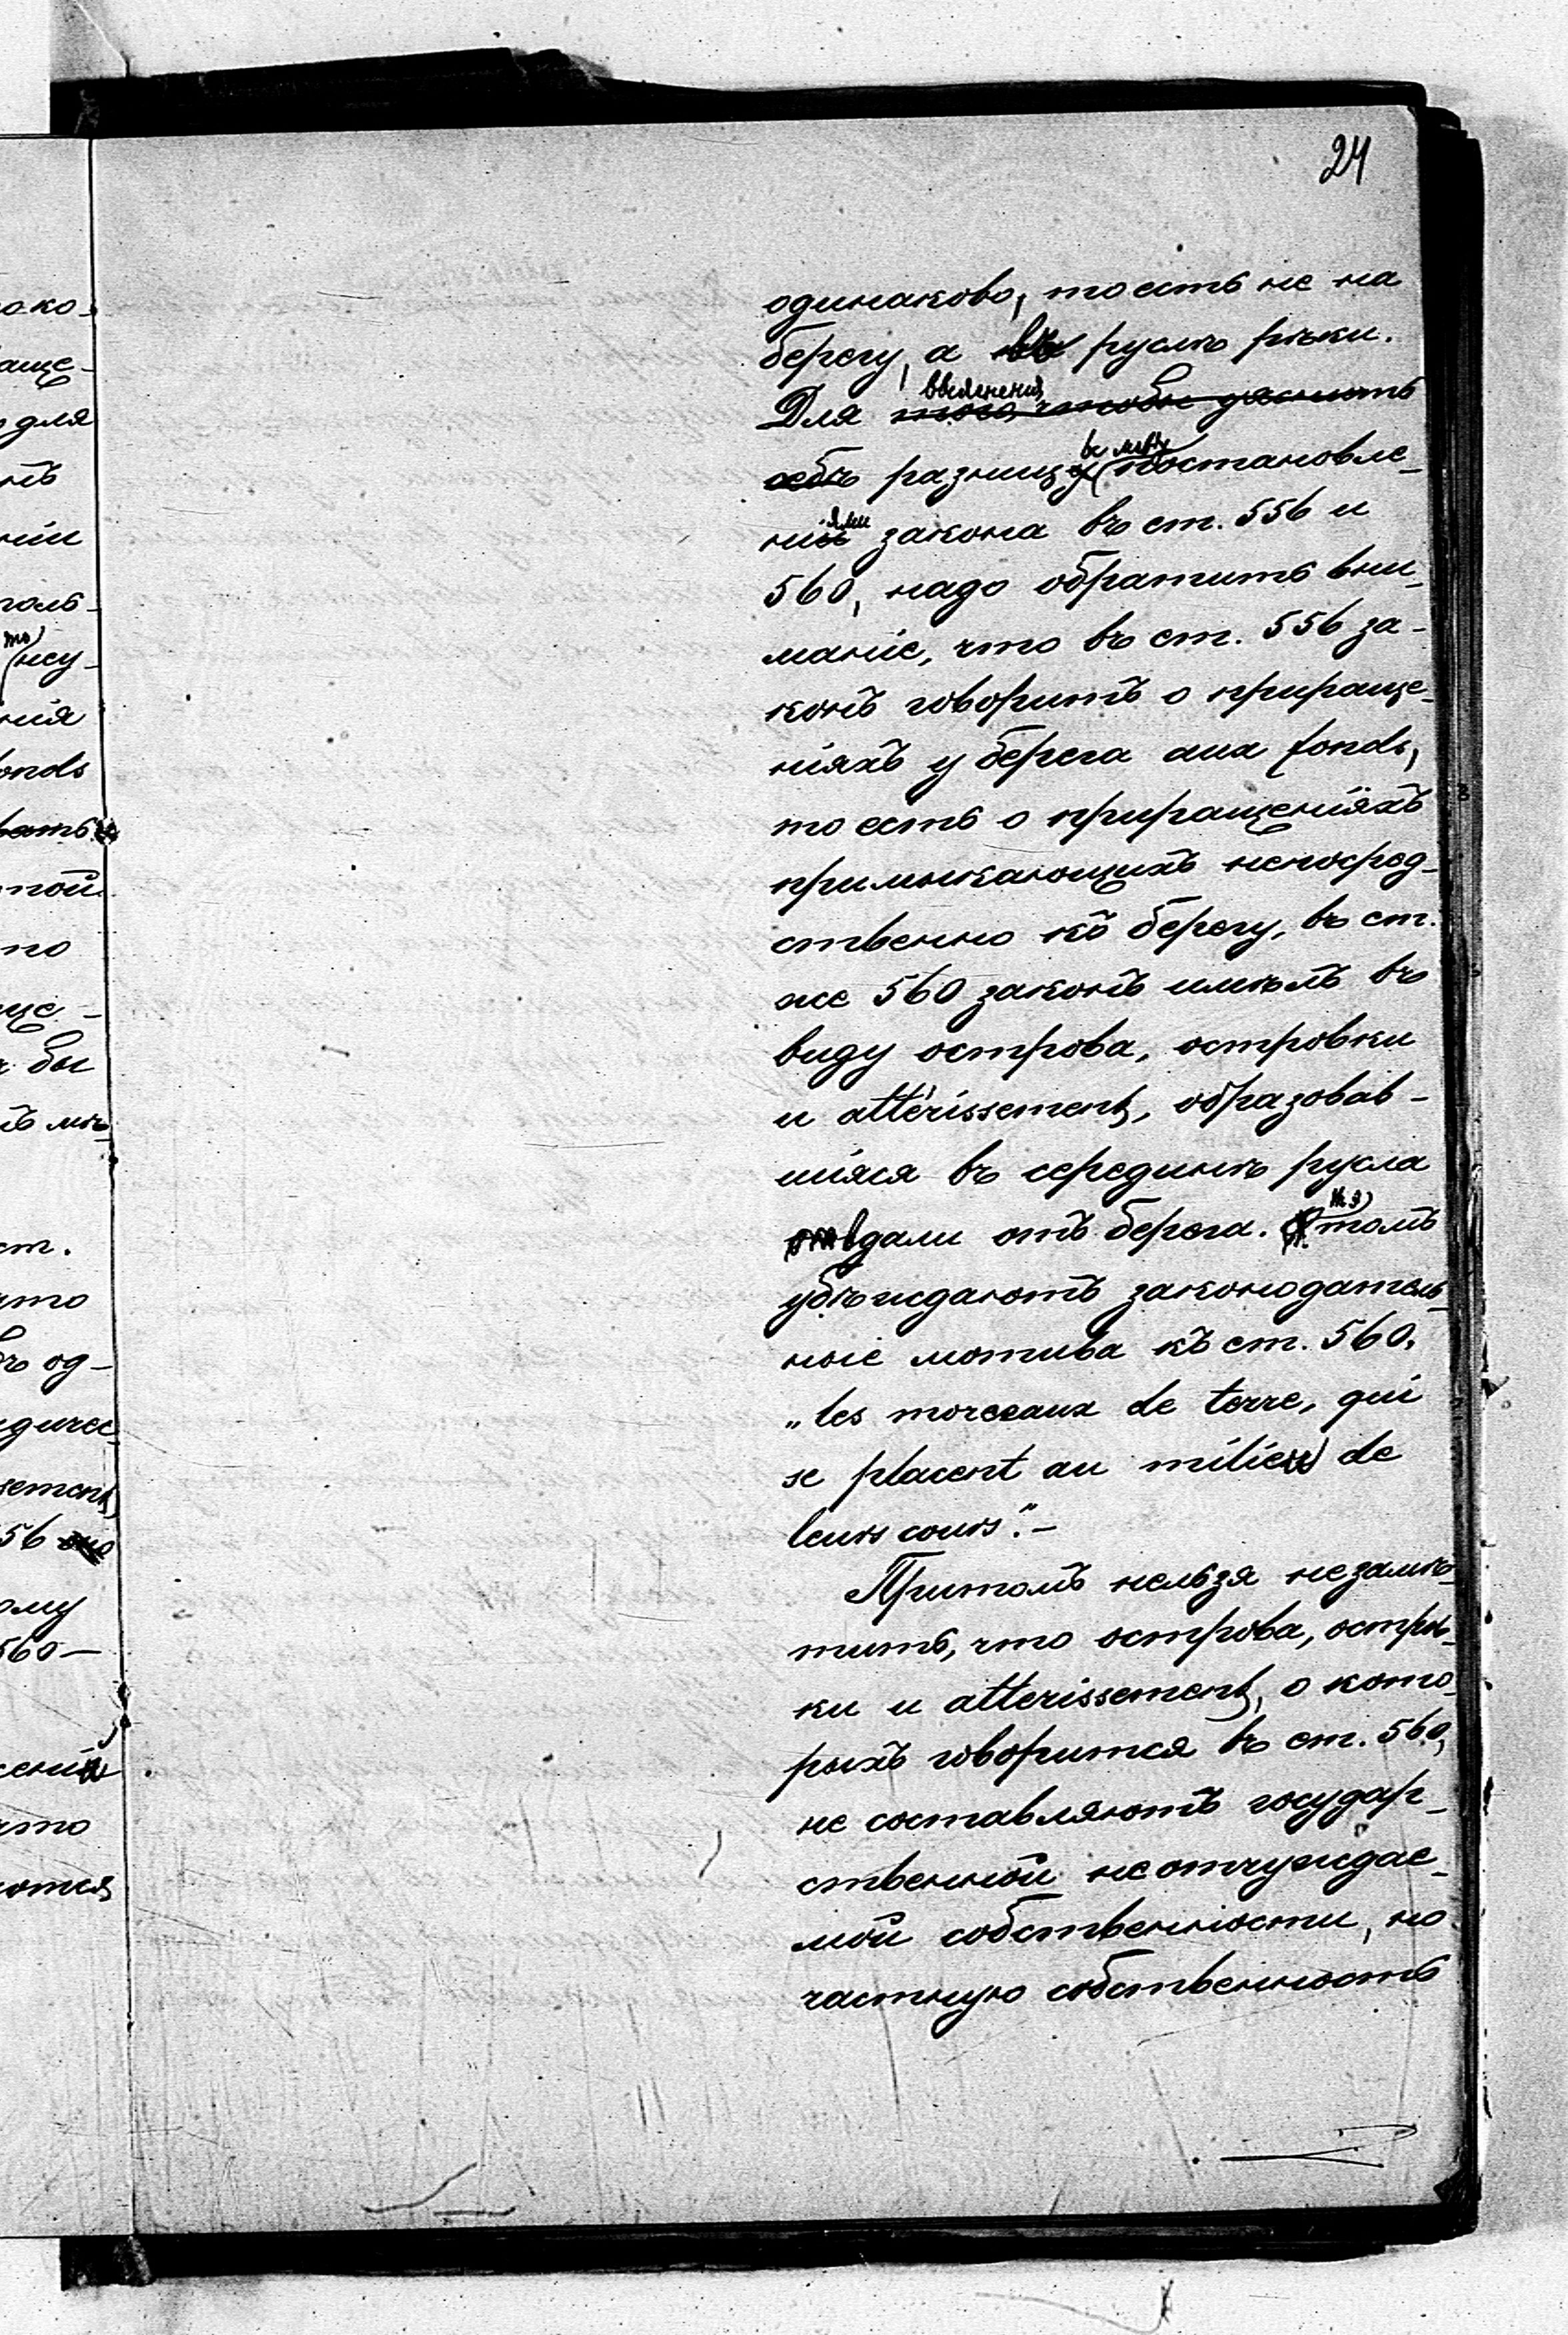 24
одинаково, то есть не на
берегу, а въ руслѣ рѣки.
выясненія
Для того, чтобы уяснить
себѣ разницу между постановле-
ніями закона въ ст. 556 и
560, надо обратить вни-
маніе, что въ ст. 556 за-
конъ говоритъ о прираще-
ніяхъ у берега aux fonds,
то есть о приращеніяхъ
примыкающихъ непосред-
ственно къ берегу, въ ст.
же 560 законъ имѣлъ въ
виду острова, островки
и attérissements, образовав-
шіяся въ серединѣ русла
вдали отъ берега. томъ
убѣждаютъ законодатель-
ные мотива къ ст. 560.
„les morceaux de terre, qui
se placent au milieu de
leurs cours".-
Притомъ нельзя незамѣ-
тить, что острова, остров-
ки и atterissements, о кото-
рыхъ говорится въ ст. 560,
не составляютъ государ-
ственной неотчуждае-
мой собственности, но
частную собственность